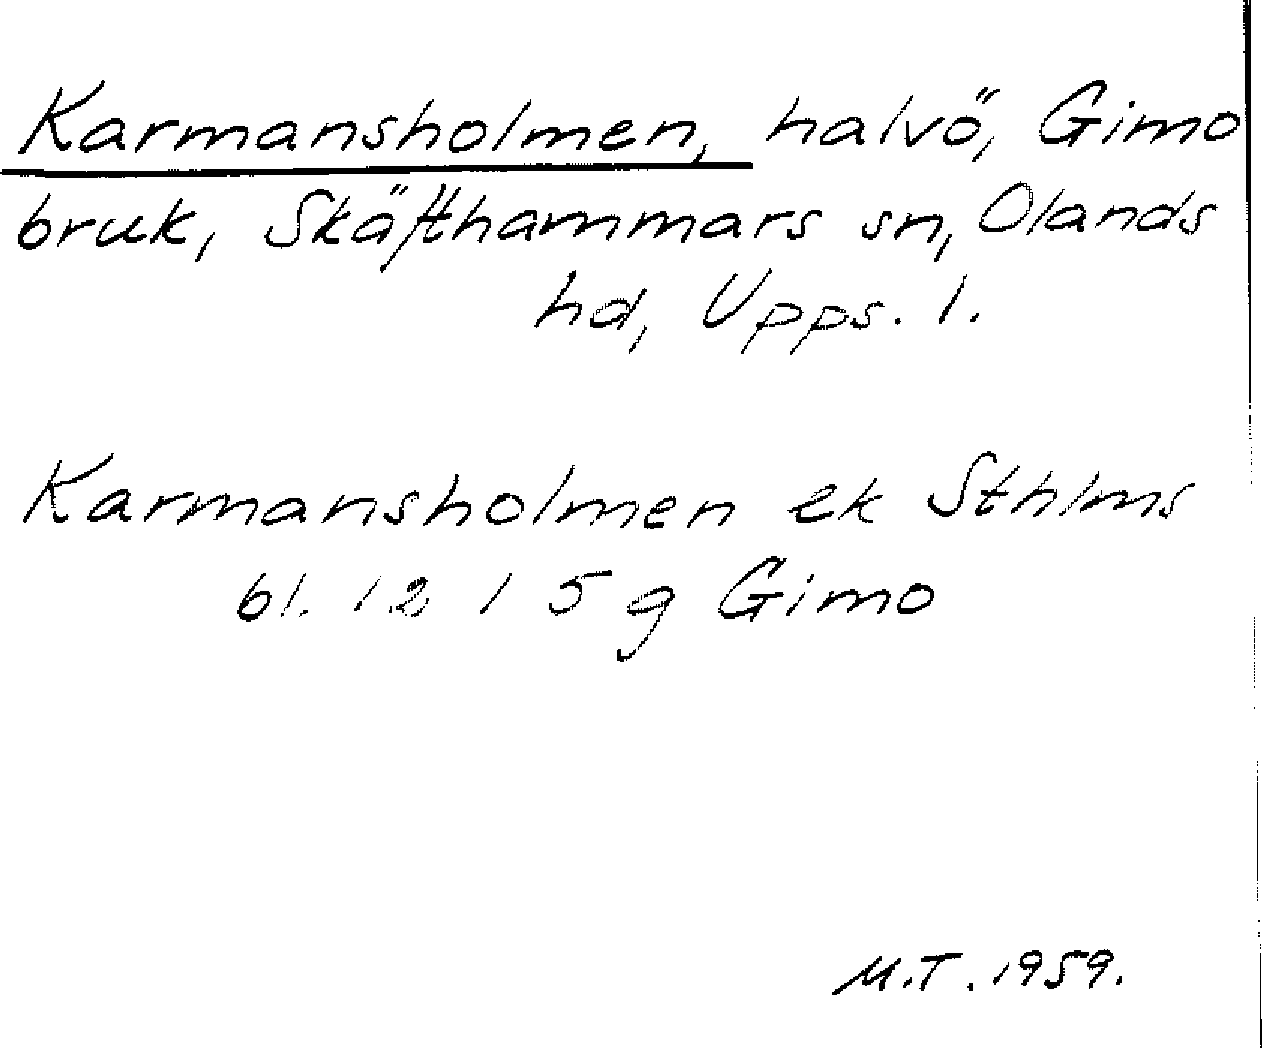 Karmansholmen, halvö, Gimo
bruk, Skäfthammars sn, Olands
hd, Upps. l.
Karmansholmen ek Sthlms
bl. 12 I 5 g Gimo
M.T. 1959.